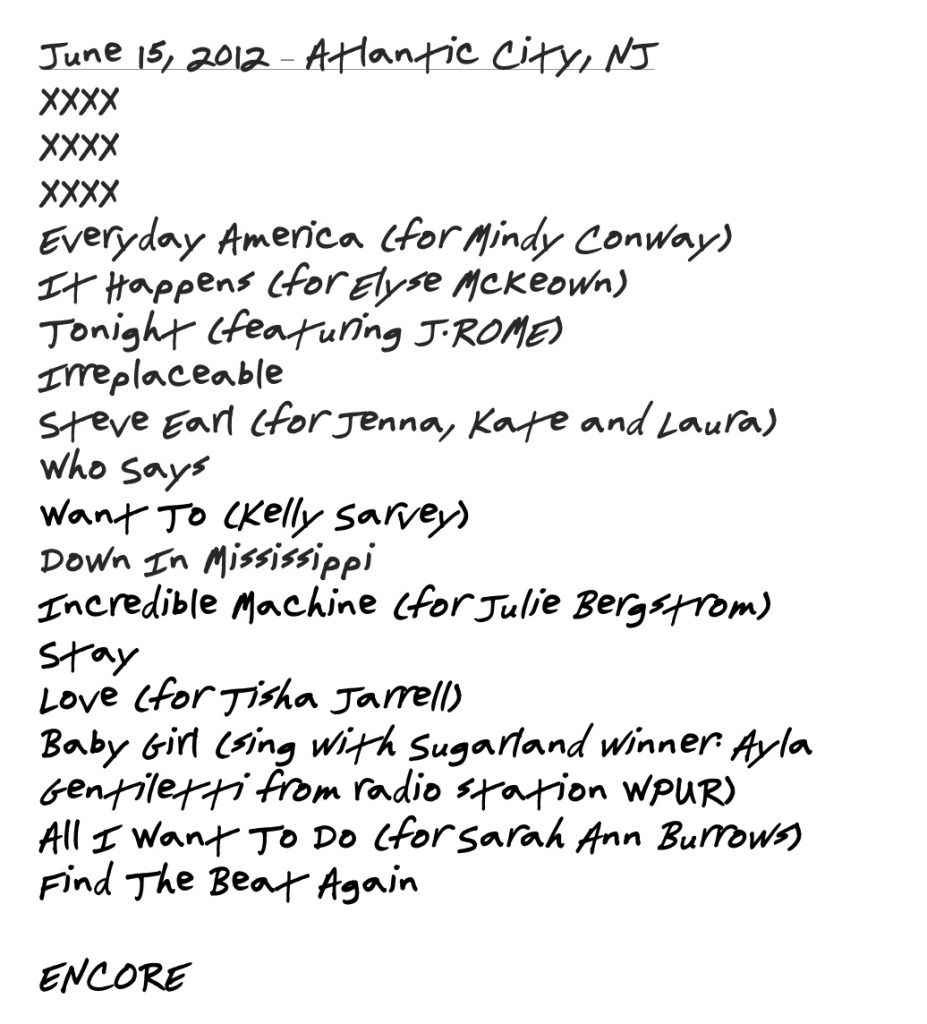 June 15, 2012 – Atlantic City, NJ
XXXX
XXXX
XXXX
Everyday America (for Mindy Conway)
It Happens (for Elyse McKeown)
Tonight (featuring J.ROME)
Irreplaceable
Steve Earl (for Jenna, Kate and Laura)
Who Says
Want To (Kelly Sarvey)
Down In Mississippi
Incredible Machine (for Julie Bergstrom)
Stay
Love (for Tisha Jarrell)
Baby Girl (sing with Sugarland winner: Ayla
Gentiletti from radio station WPUR)
All I Want To Do (for Sarah Ann Burrows)
Find The Beat Again
ENCORE